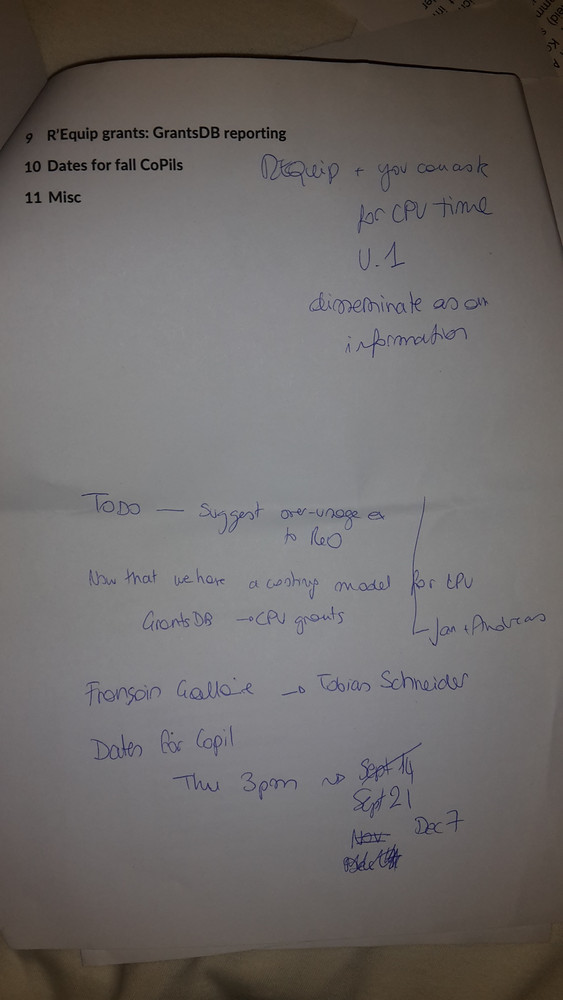 9 R'Equip grants: GrantsDB reporting
10 Dates for fall CoPils
11 Misc
REquip + you can ask
for CPU time
U.1
disseminate as an
information
TODO — Suggest over-usage
to ReO
Now that we have a costing model for CPU
GrantsDB → CPU grants
Jan + Andreas
→ Tobias Schneider
Dates for Copil
Thu 3pm → Sept 14
Sept 21
Nov Dec 7